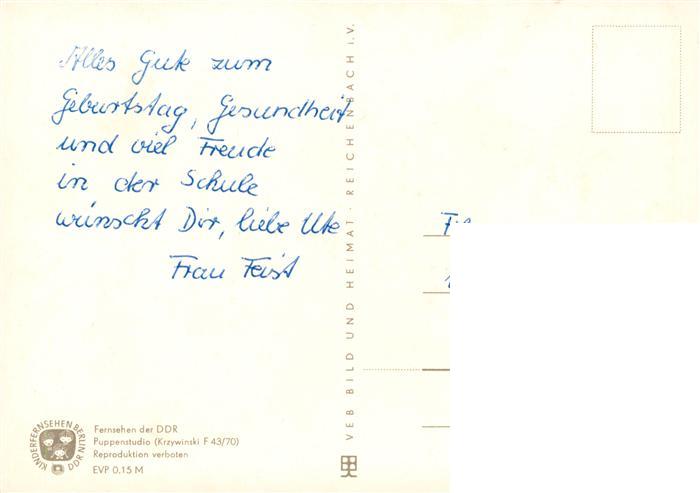 Alles Gute zum
Geburtstag, Gesundheit
und viel Freude
in der Schule
wünscht Dir, liebe Ute
Frau Feist
VEB BILD UND HEIMAT · REICHENBACH I. V.
KINDERFERNSEHEN BERLIN
DDR
Fernsehen der DDR
Puppenstudio (Krzywinski F 43/70)
Reproduktion verboten
EVP 0,15 M